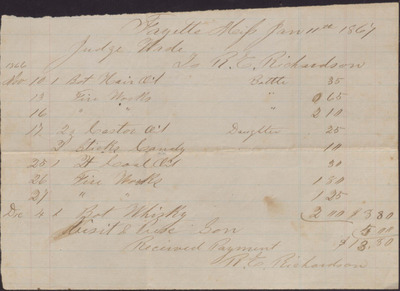 Fayette Miss Jan 11th 1867
Judge Wade
To R. C. Richardson
Nov 10 1 Bot Hair Oil 35
13 Fire Works " 65
16 " " " 2 10
17 2 Castor Oil Daughter 25
2 Sticks Candy 10
25 1 Coal Oil 30
26 Fire Works 1 30
27 " " 1 25
Dec 4 1 Bot Whisky 2 00 8 30
Visit & Son 5 00
Received Payment $13.30
R. C. Richardson